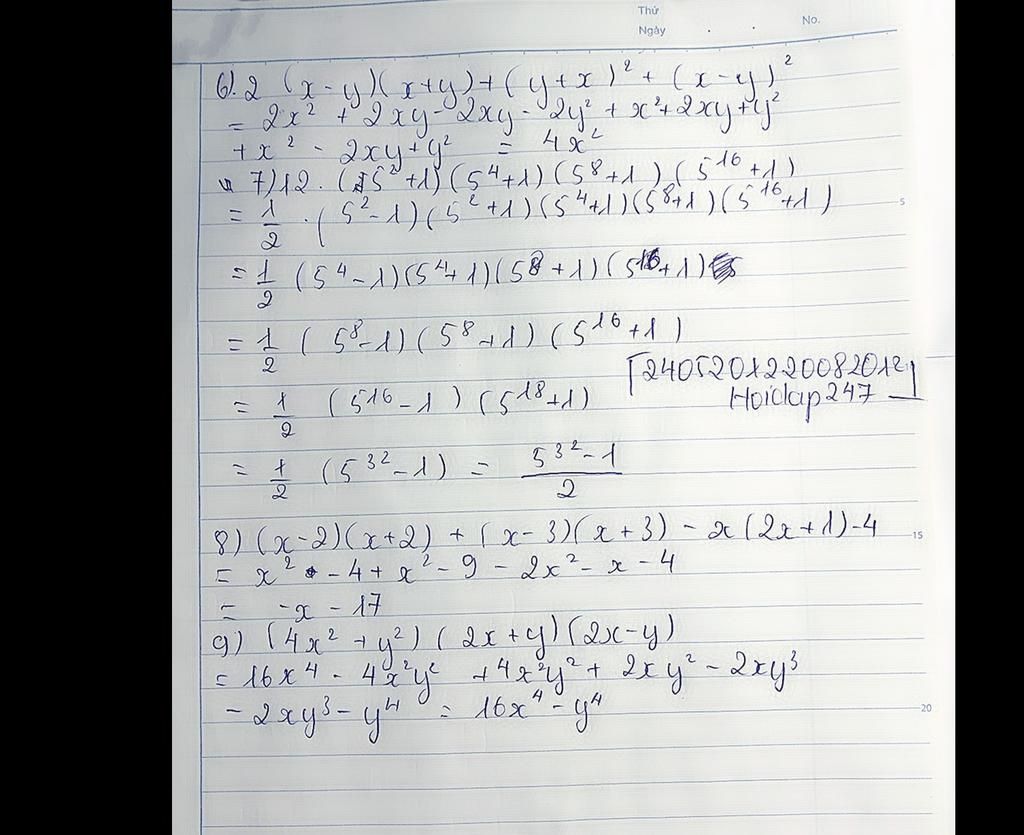 Thứ
Ngày . . No.
6). 2 (x-y)(x+y)+(y+x)² + (x-y)²
= 2x² + 2xy - 2xy - 2y² + x²+2xy+y²
+x² - 2xy+y² = 4x²
7) 12 . (5²+1)(5⁴+1)(5⁸+1)(5¹⁶+1)
= 1/2 . (5²-1)(5²+1)(5⁴+1)(5⁸+1)(5¹⁶+1)
5
= 1/2 (5⁴-1)(5⁴+1)(5⁸+1)(5¹⁶+1)
= 1/2 (5⁸-1)(5⁸+1)(5¹⁶+1)
2405201220082012
= 1/2 (5¹⁶-1)(5¹⁸+1)
Hoidap247
= 1/2 (5³²-1) = (5³²-1)/2
8) (x-2)(x+2) + (x-3)(x+3) - x(2x+1)-4
15
= x² - 4 + x² - 9 - 2x² - x - 4
= -x - 17
9) (4x² + y²) (2x+y)(2x-y)
= 16x⁴ - 4x²y² + 4x²y² + 2xy² - 2xy³
- 2xy³ - y⁴ = 16x⁴ - y⁴
20